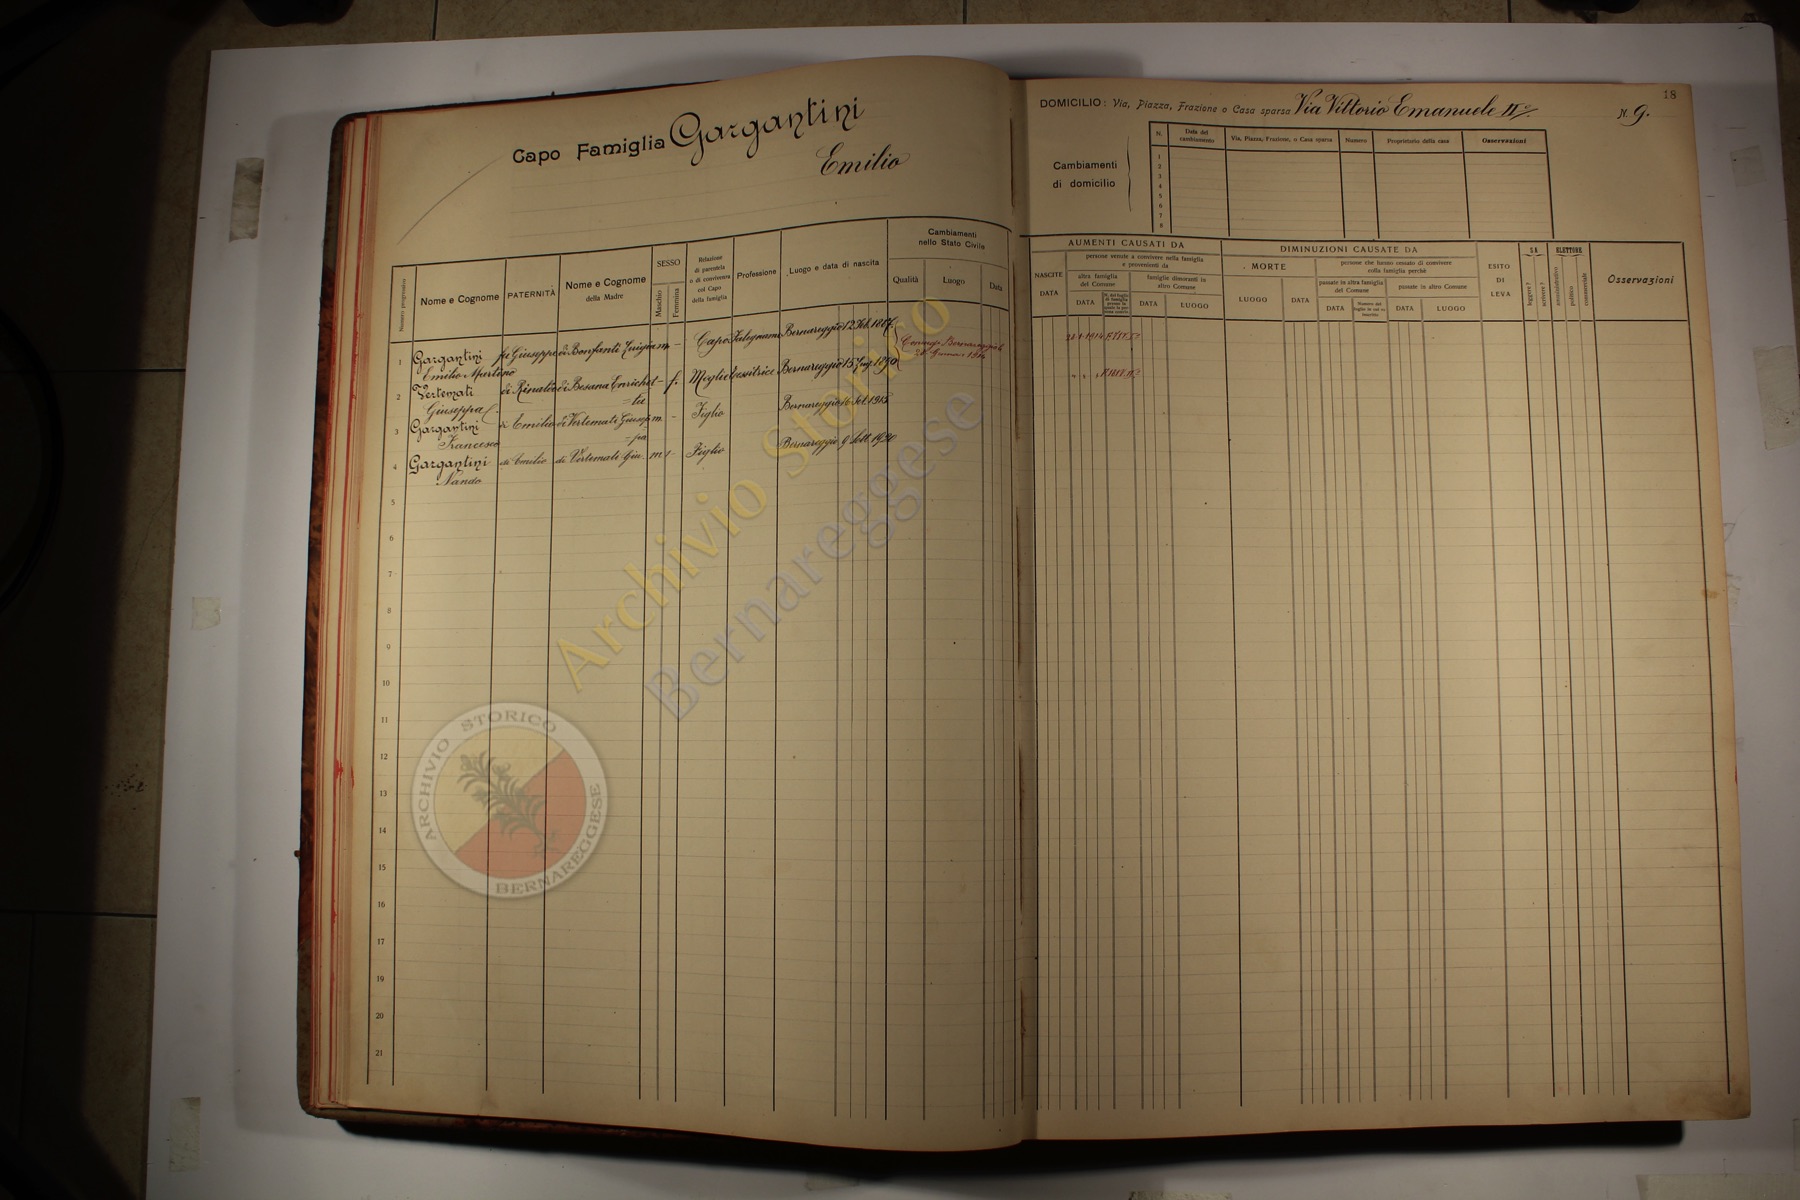 Capo Famiglia Gargantini
Emilio
18
DOMICILIO: Via, Piazza, Frazione o Casa sparsa Via Vittorio Emanuele II° N. 9.
Cambiamenti
di domicilio
N. Data del cambiamento Via, Piazza, Frazione, o Casa sparsa Numero Proprietario della casa Osservazioni
1
2
3
4
5
6
7
8
Numero progressivo
Nome e Cognome
PATERNITÀ
Nome e Cognome
della Madre
SESSO
Maschio
Femmina
Relazione
di parentela
o di convivenza
col Capo
della famiglia
Professione
Luogo e data di nascita
Cambiamenti
nello Stato Civile
Qualità Luogo Data
AUMENTI CAUSATI DA
NASCITE
DATA
persone venute a convivere nella famiglia
e provenienti da
altra famiglia
del Comune
famiglie dimoranti in
altro Comune
DATA
DATA LUOGO
DIMINUZIONI CAUSATE DA
MORTE
LUOGO DATA
persone che hanno cessato di convivere
colla famiglia perchè
passate in altra famiglia
del Comune
passate in altro Comune
DATA
DATA LUOGO
ESITO
DI
LEVA
SA
leggere?
scrivere?
ELETTORE
amministrativo
politico
commerciale
Osservazioni
1 Gargantini fu Giuseppe di Bonfanti Luigia m. – Capo Falegname Bernareggio 12 Feb. 1887
Emilio Martino
Coniug. Bernareggio
1914
2 Vertemati di Rinaldo di Besana Enrichet- – f. Moglie Tessitrice Bernareggio 15 1890
Giuseppa ta
3 Gargantini di Emilio di Vertemati Giusep m. – Figlio Bernareggio 16 1915
Francesco pa
4 Gargantini di Emilio di Vertemati Giu. m – Figlio Bernareggio 9 Sett. 1920
Nando
5
6
7
8
9
10
11
12
13
14
15
16
17
18
19
20
21
Archivio Storico
Bernareggese
ARCHIVIO STORICO
BERNAREGGESE